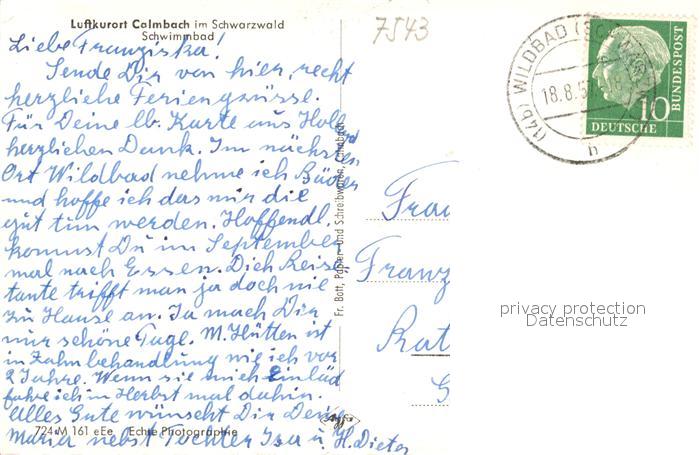 Luftkurort Calmbach im Schwarzwald
Schwimmbad
7543
Liebe Franziska!
Sende Dir von hier, recht
herzliche Feriengrüsse.
Für Deine lb. Karte aus Holl
herzlichen Dank. Im nächsten
Ort Wildbad nehme ich Bäder
und hoffe ich das mir die
gut tun werden. Hoffendl.
kommst Du im September
mal nach Essen. Dich Reise
tante trifft man ja doch nie
zu Hause an. Ja mach Dir
nur schöne Tage. M. Hütten ist
in Zahnbehandlung wie ich vor
2 Jahre. Wenn sie mich einläd
fahre ich im Herbst mal dahin.
Alles Gute wünscht Dir Deine
Maria nebst Tochter Isa u. H. Dieter
724 M 161 eEe. Echte Photographie
Agfa
Fr. Bott, Papier- und Schreibwaren, Calmbach
(14b) WILDBAD
18.8.5
h
10
DEUTSCHE
BUNDESPOST
Frau
Franz
Rat
privacy protection
Datenschutz